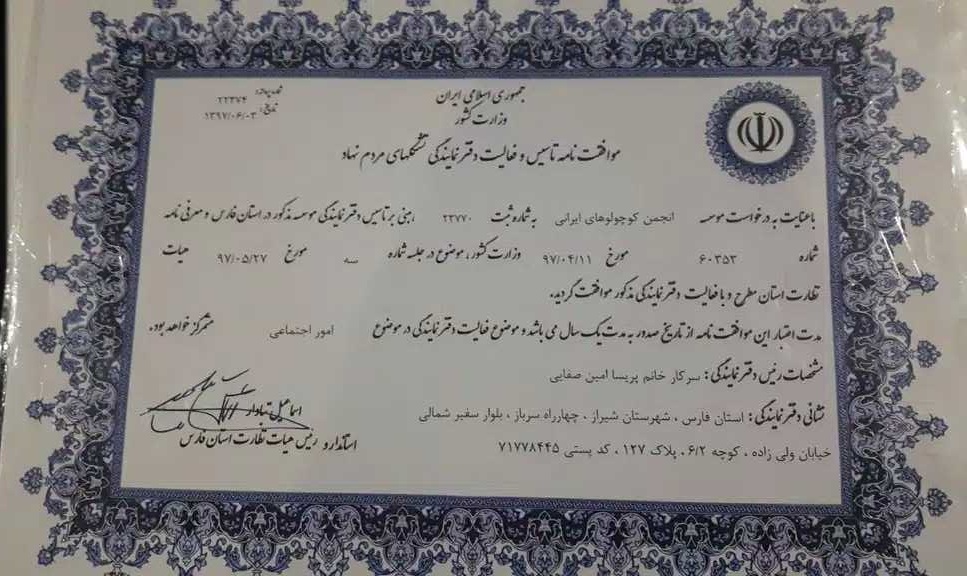 جمهوری اسلامی ایران
وزارت کشور
شماره پروانه: ۲۲۳۷۴
تاریخ: ۱۳۹۷/۰۶/۰۳
موافقت نامه تاسیس و فعالیت دفتر نمایندگی تشکلهای مردم نهاد
با عنایت به درخواست موسسه انجمن کوچولوهای ایرانی به شماره ثبت ۲۳۷۷۰ مبنی بر تاسیس دفتر نمایندگی موسسه مذکور در استان فارس و معرفی نامه
شماره ۶۰۳۵۳ مورخ ۹۷/۰۴/۱۱ وزارت کشور، موضوع در جلسه شماره سه مورخ ۹۷/۰۵/۲۷ هیات
نظارت استان مطرح و با فعالیت دفتر نمایندگی مذکور موافقت گردید.
مدت اعتبار این موافقت نامه از تاریخ صدور به مدت یک سال می باشد و موضوع فعالیت دفتر نمایندگی در موضوع امور اجتماعی متمرکز خواهد بود.
مشخصات رئیس دفتر نمایندگی: سرکار خانم پریسا امین صفایی
نشانی دفتر نمایندگی: استان فارس ، شهرستان شیراز ، چهارراه سرباز ، بلوار سفیر شمالی
خیابان ولی زاده ، کوچه ۶/۲ ، پلاک ۱۲۷ ، کد پستی ۷۱۷۷۸۴۴۵
اسماعیل تبادار
استاندار و رئیس هیات نظارت استان فارس